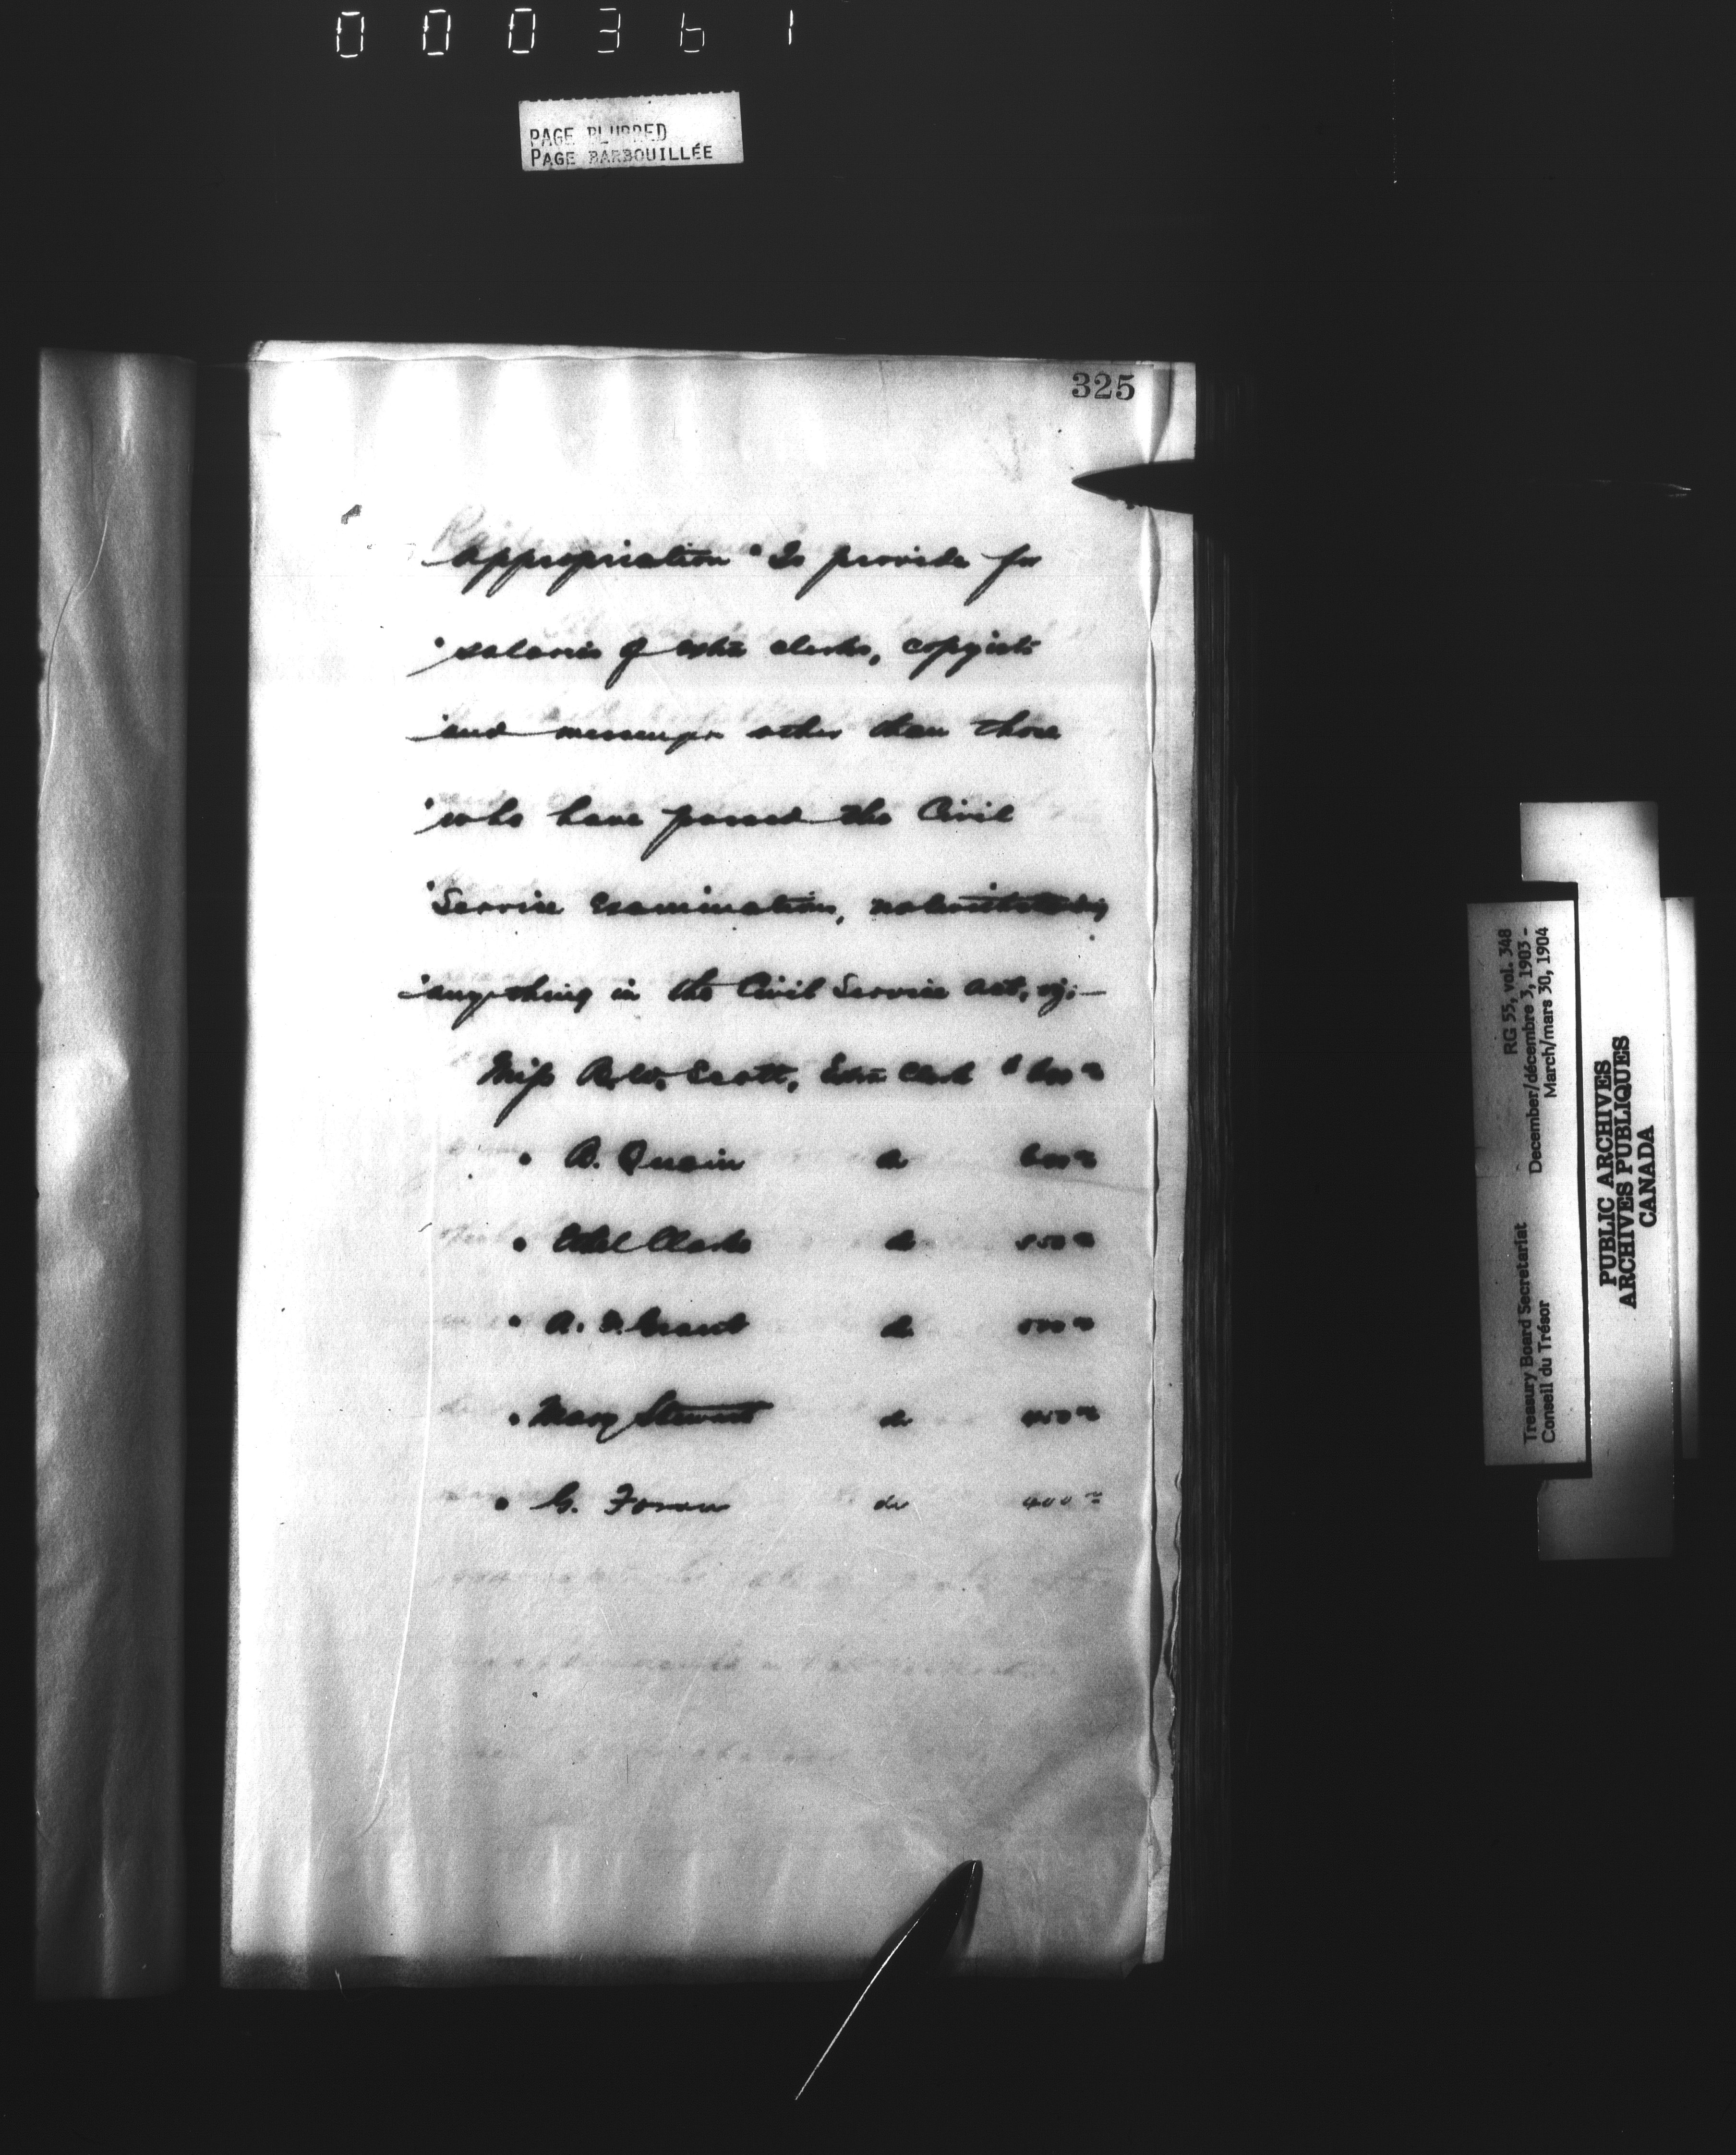 000361
PAGE BLURRED
PAGE BARBOUILLÉE
325
appropriation "To provide for
"salaries of extra clerks, copyists
"and messengers other than those
"who have passed the Civil
"Service Examination, notwithstanding
"anything in the Civil Service Act, viz:—
Miss R. W. Scott, Extra Clerk $600 00
" B. Quain do 600 00
" Ethel Clarke do 550 00
" A. Grant do 500 00
" Mary Stewart do 450 00
" G. Foran do 400 00
Treasury Board Secretariat RG 55, vol. 348
Conseil du Trésor December/décembre 3, 1903 -
March/mars 30, 1904
PUBLIC ARCHIVES
ARCHIVES PUBLIQUES
CANADA